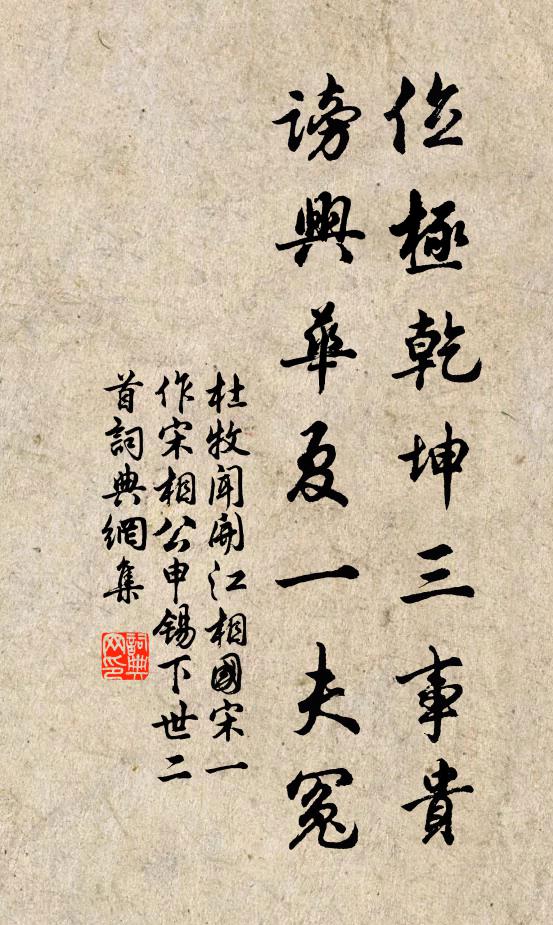 位極乾坤三事貴
謗興華夏一夫冤
杜牧聞開江相國宋一
作宋相公申錫下世二
首詞典網集
詞典
网印